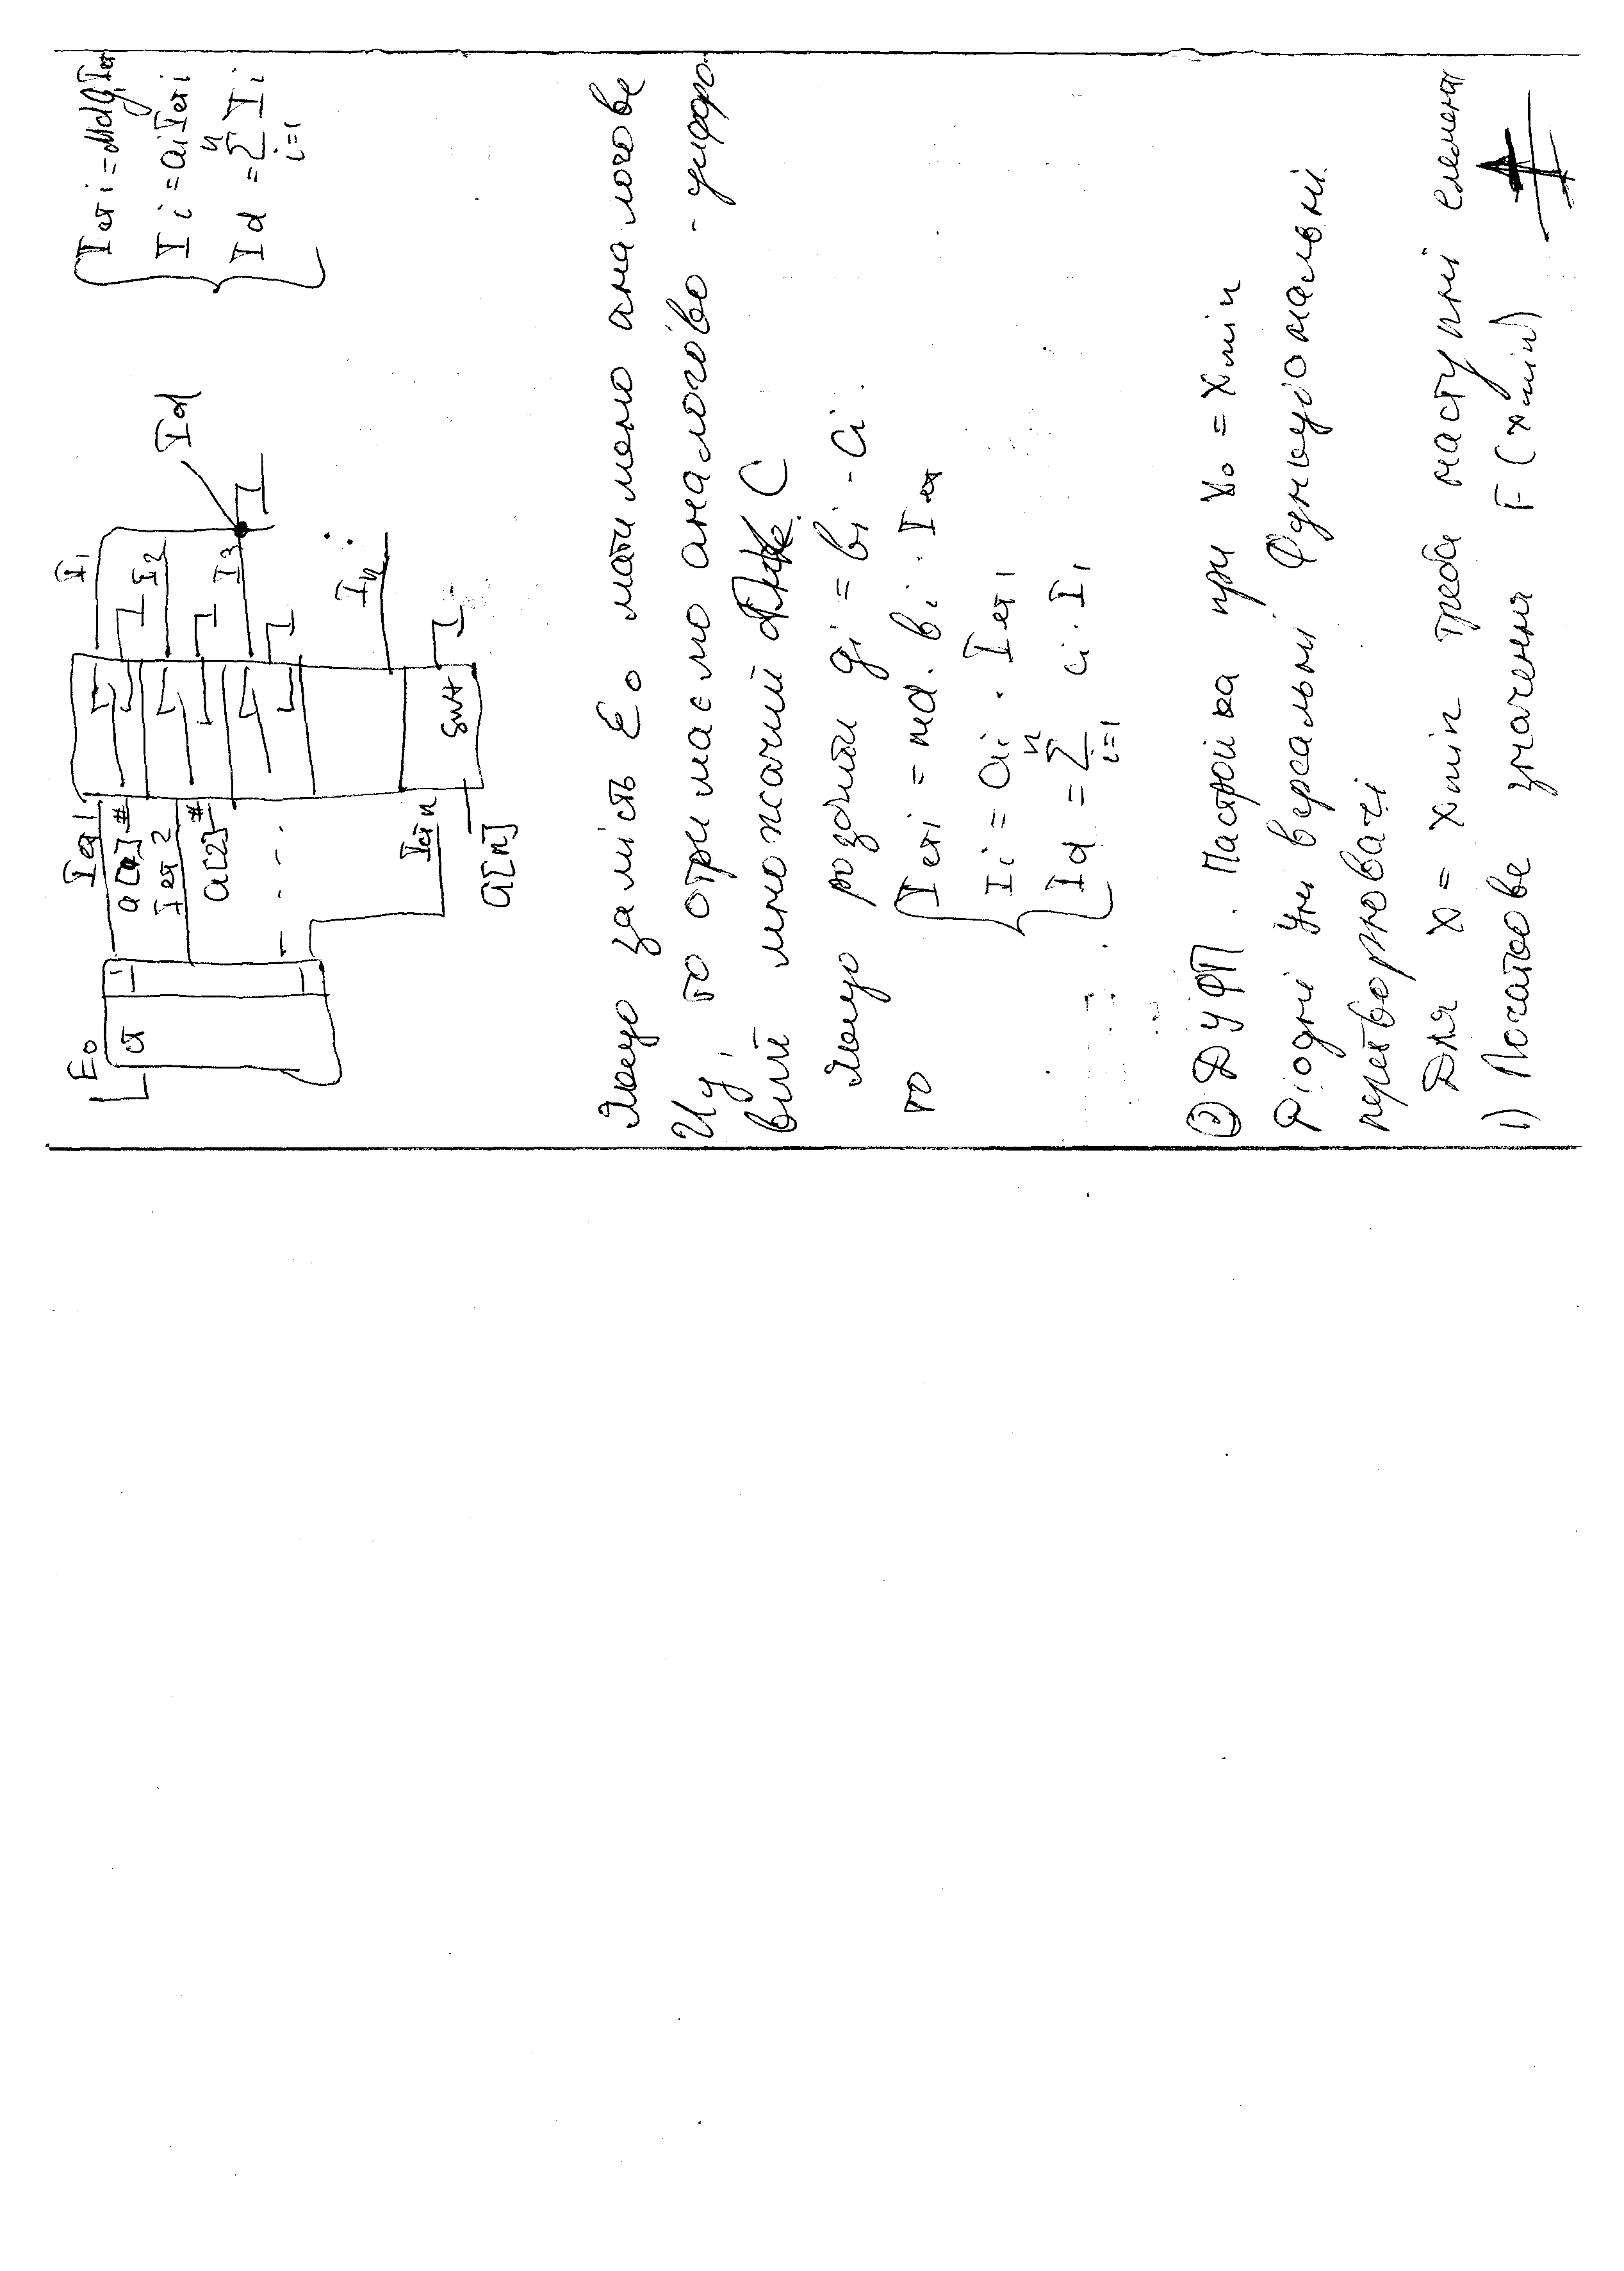 E₀
σ
Iет1
a[1] #
Iет2
a[2] #
Iетn
a[n]
SWH
I₁
I₂
I₃
Iₙ
Id
Iетi = αd gi Iет
Ii = ai Iетi
Id = Σ Ii
n
i=1
Якщо замість E₀ матимемо аналогове
Uy, то отримаємо аналогово-цифро-
вий множачий С
Якщо розбити gi = bi · Ci
то
Iетi = md · bi · Iет
Ii = ai · Iетi
Id = Σ ci · Ii
n
i=1
② ДУФП. Настройка при x₀ = xmin
Різні Універсальні Функціональні
перетворювачі
Для x = xmin треба наступні елемент
1) Початове значення F(xmin)